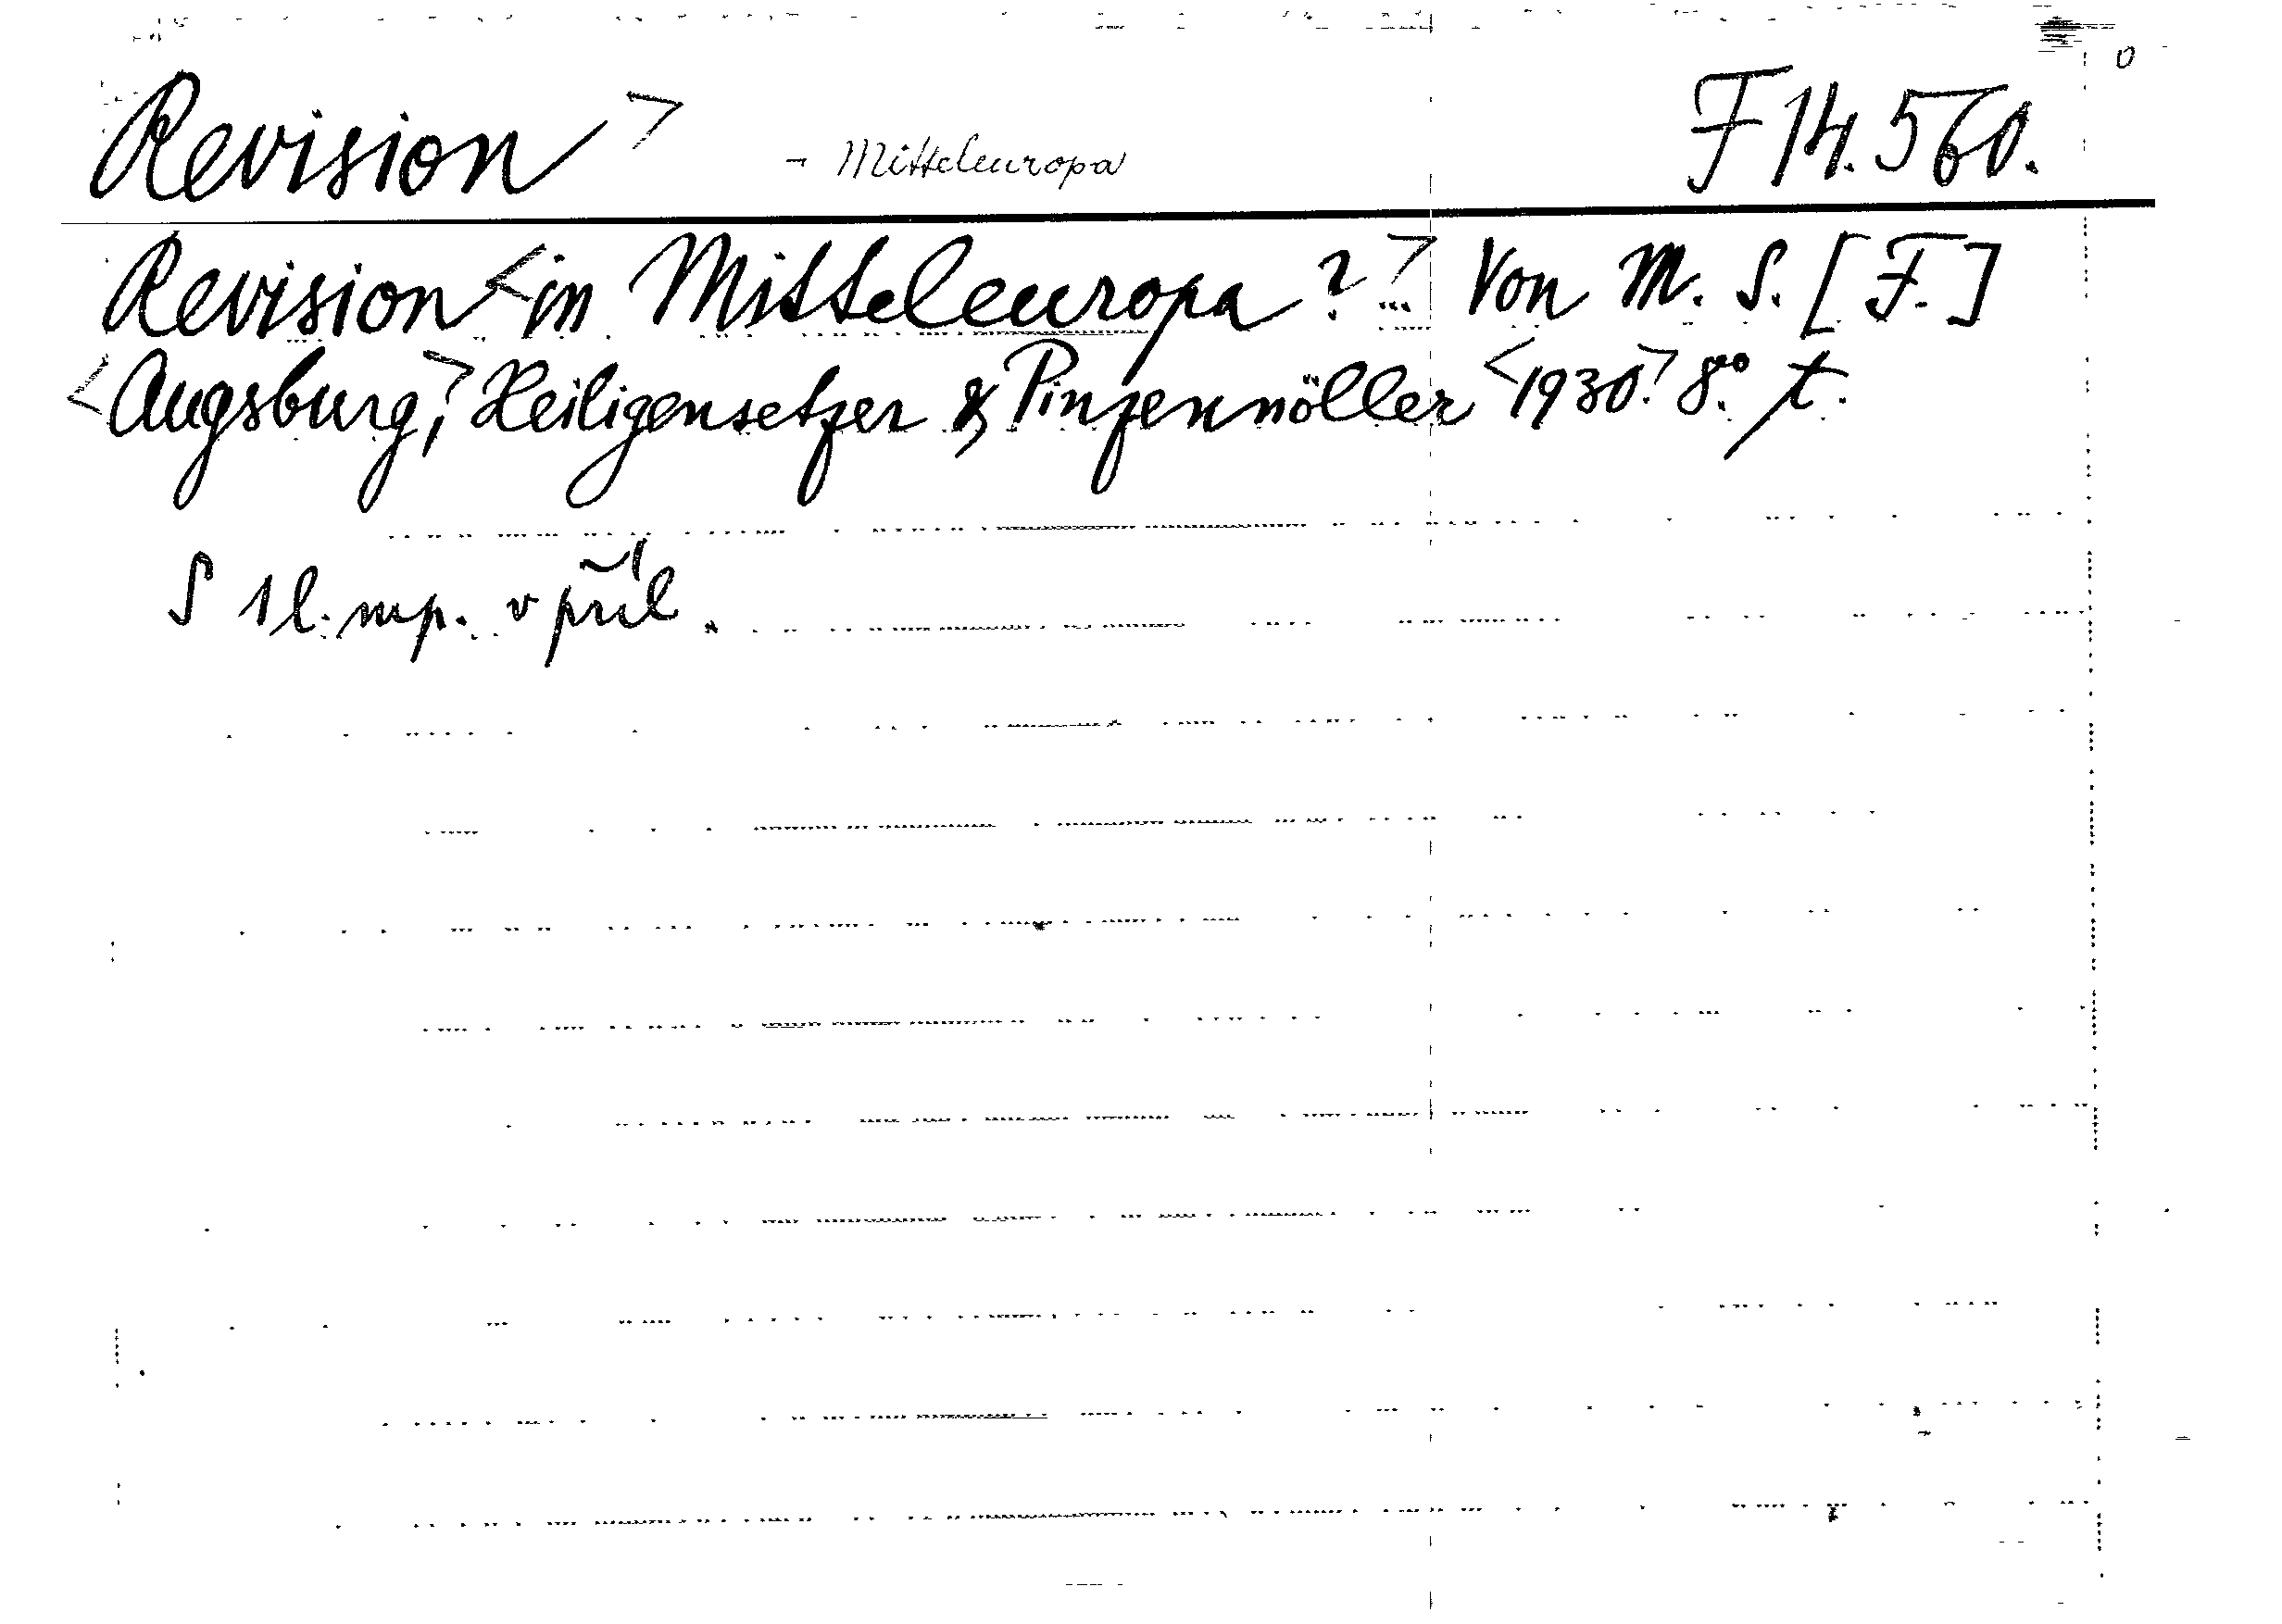 Revision > - Mitteleuropa F 14.560.
Revision <in Mitteleuropa?> Von M. S. [F.]
<Augsburg,> Heiligensetzer & Pinzenmöller <1930.> 8° t.
S 1 l. mp. v příl.